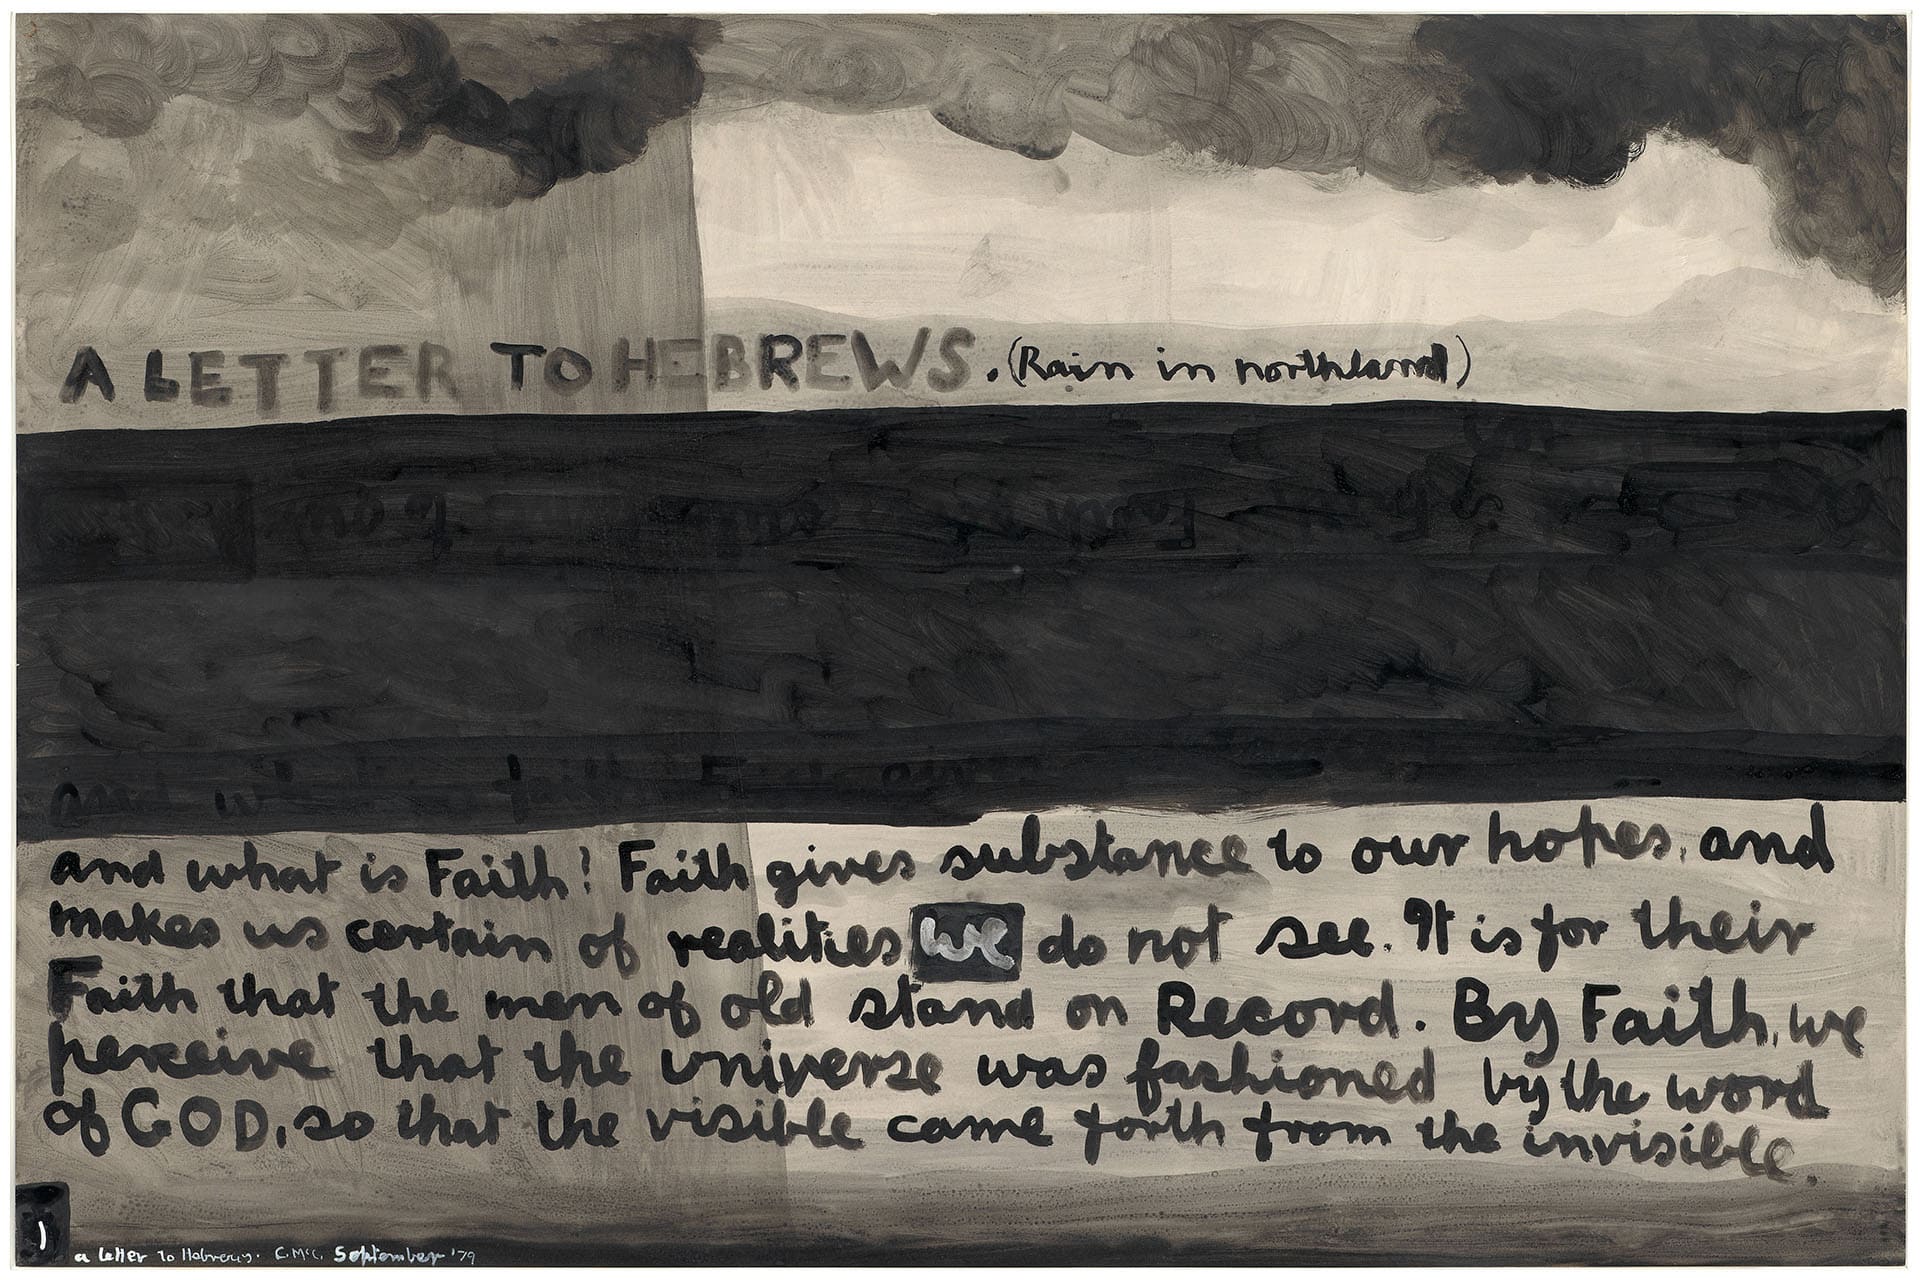 A LETTER TO HEBREWS. (Rain in northland)
and what is Faith? Faith gives substance to our hopes, and
makes us certain of realities we do not see. It is for their
Faith that the men of old stand on Record. By Faith, we
perceive that the universe was fashioned by the word
of GOD, so that the visible came forth from the invisible.
1
a letter to Hebrews. C.McC. September '79